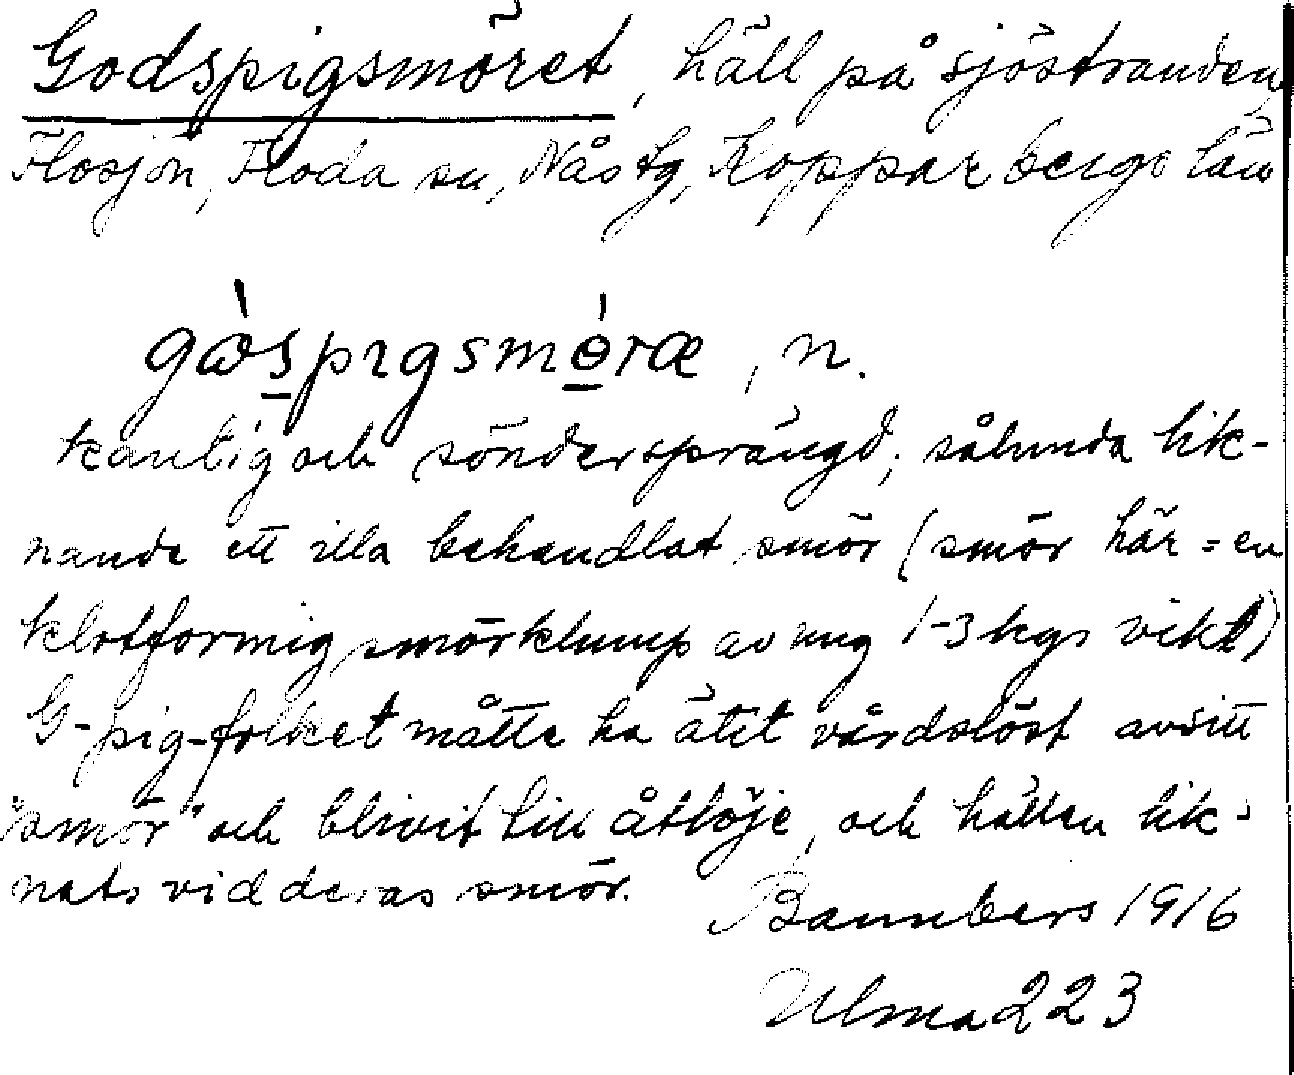 Godspigsmöret, häll på sjöstranden,
Flosjön, Floda sn, Nås tg, Kopparbergs län
gὼspɪgsmɵ́ræ, n.
kantig och söndersprängd, sålunda lik-
nande ett illa behandlat smör (smör här = en
klotformig smörklump av ung 1-3 kgs vikt)
G-pig-folket måtte ha ätit vårdslöst av sitt
"smör" och blivit till åtlöje, och hällen lik-
nats vid deras smör.
Bannbers 1916
Ulma 223